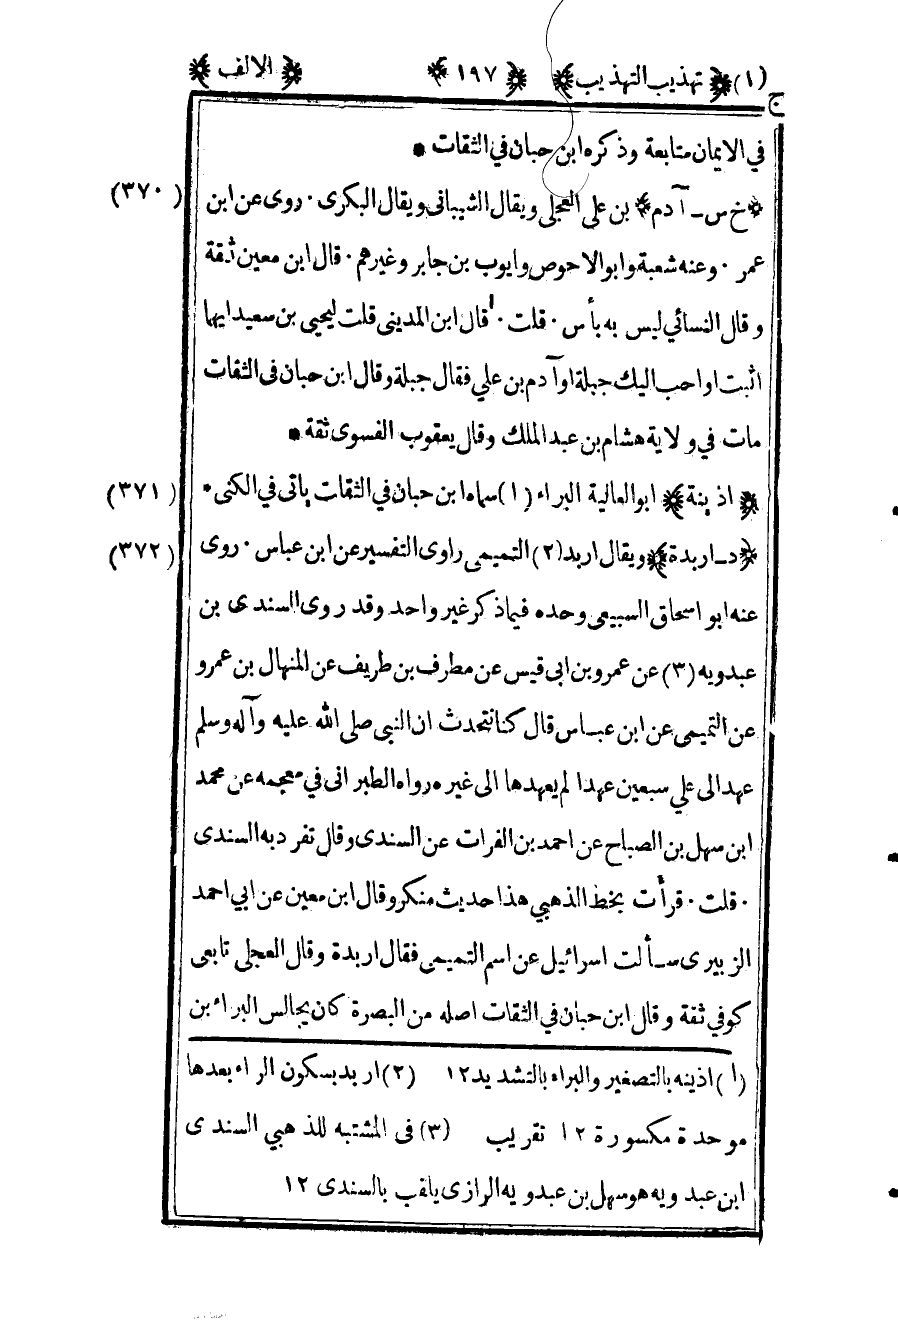 ج (١) ﴿ تهذيب التهذيب ﴾ ﴿ ١٩٧ ﴾ ﴿ الالف ﴾
في الايمان متابعة وذكره ابن حبان في الثقات •
(٣٧٠) ﴿ خ س ـ آدم ﴾ بن علي العجلي ويقال الشيباني ويقال البكرى ٠ روى عن ابن
عمر ٠ وعنه شعبة وابو الاحوص وايوب بن جابر وغيرهم ٠ قال ابن معين ثقة
وقال النسائي ليس به بأس ٠ قلت ٠ قال ابن المديني قلت ليحيى بن سعيد ايهما
اثبت او احب اليك جبلة او آدم بن علي فقال جبلة وقال ابن حبان في الثقات
مات في ولاية هشام بن عبد الملك وقال يعقوب الفسوى ثقة •
(٣٧١) ﴿ اذينة ﴾ ابو العالية البراء (١) سماه ابن حبان في الثقات ياتى في الكنى •
(٣٧٢) ﴿ د ـ اربدة ﴾ ويقال اربد (٢) التميمي راوى التفسير عن ابن عباس ٠ روى
عنه ابو اسحاق السبيعي وحده فيما ذكر غير واحد وقد روى السندى بن
عبدويه (٣) عن عمرو بن ابى قيس عن مطرف بن طريف عن المنهال بن عمرو
عن التميمي عن ابن عباس قال كنا نتحدث ان النبي صلى الله عليه وآله وسلم
عهد الى علي سبعين عهدا لم يعهدها الى غيره رواه الطبرانى في معجمه عن محمد
ابن سهل بن الصباح عن احمد بن الفرات عن السندى وقال تفرد به السندى
٠ قلت ٠ قرأت بخط الذهبي هذا حديث منكر وقال ابن معين عن ابي احمد
الزبيرى سألت اسرائيل عن اسم التميمي فقال اربدة وقال العجلي تابعى
كوفي ثقة وقال ابن حبان في الثقات اصله من البصرة كان يجالس البراء بن
(١) اذينه بالتصغير والبراء بالتشديد ١٢ (٢) اربد بسكون الراء بعدها
موحدة مكسورة ١٢ تقريب (٣) فى المشتبه للذهبي السندى
ابن عبدويه هو سهل بن عبدويه الرازى يلقب بالسندى ١٢